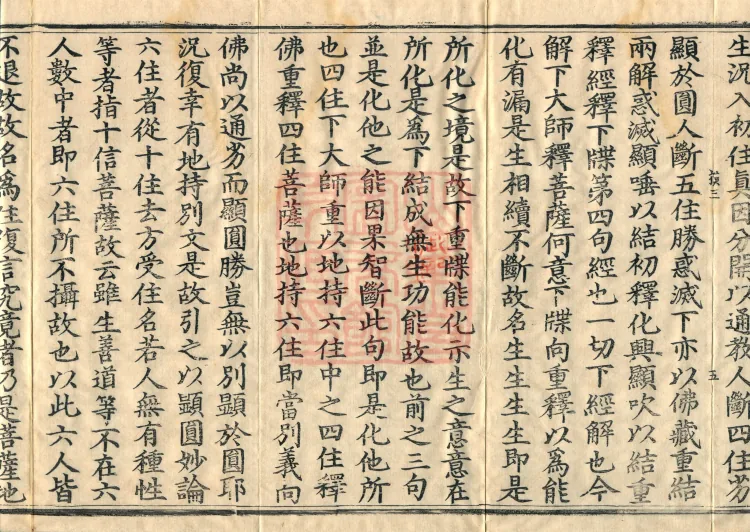 生沉入初住眞因分開以通教人斷四住劣
顯於圓人斷五住勝惑滅下亦以佛藏重結
兩解惑滅顯唾以結初釋化興顯吹以結重
釋經釋下牒第四句經也一切下經解也今
解下大師釋菩薩何意下牒向重釋以爲能
化有漏是生相續不斷故名生生生生即是
五
所化之境是故下重牒能化示生之意意在
所化是爲下結成無生功能故也前之三句
並是化他之能因果智斷此句即是化他所
也四住下大師重以地持六住中之四住釋
佛重釋四住菩薩也地持六住即當別義向
佛尚以通劣而顯圓勝豈無以別顯於圓耶
況復幸有地持別文是故引之以顯圓妙論
六住者從十住去方受住名若人無有種性
等者指十信菩薩故云雖生善道等不在六
人數中者即六住所不攝故也以此六人皆
不退故故名爲住復言究竟者乃是菩薩地